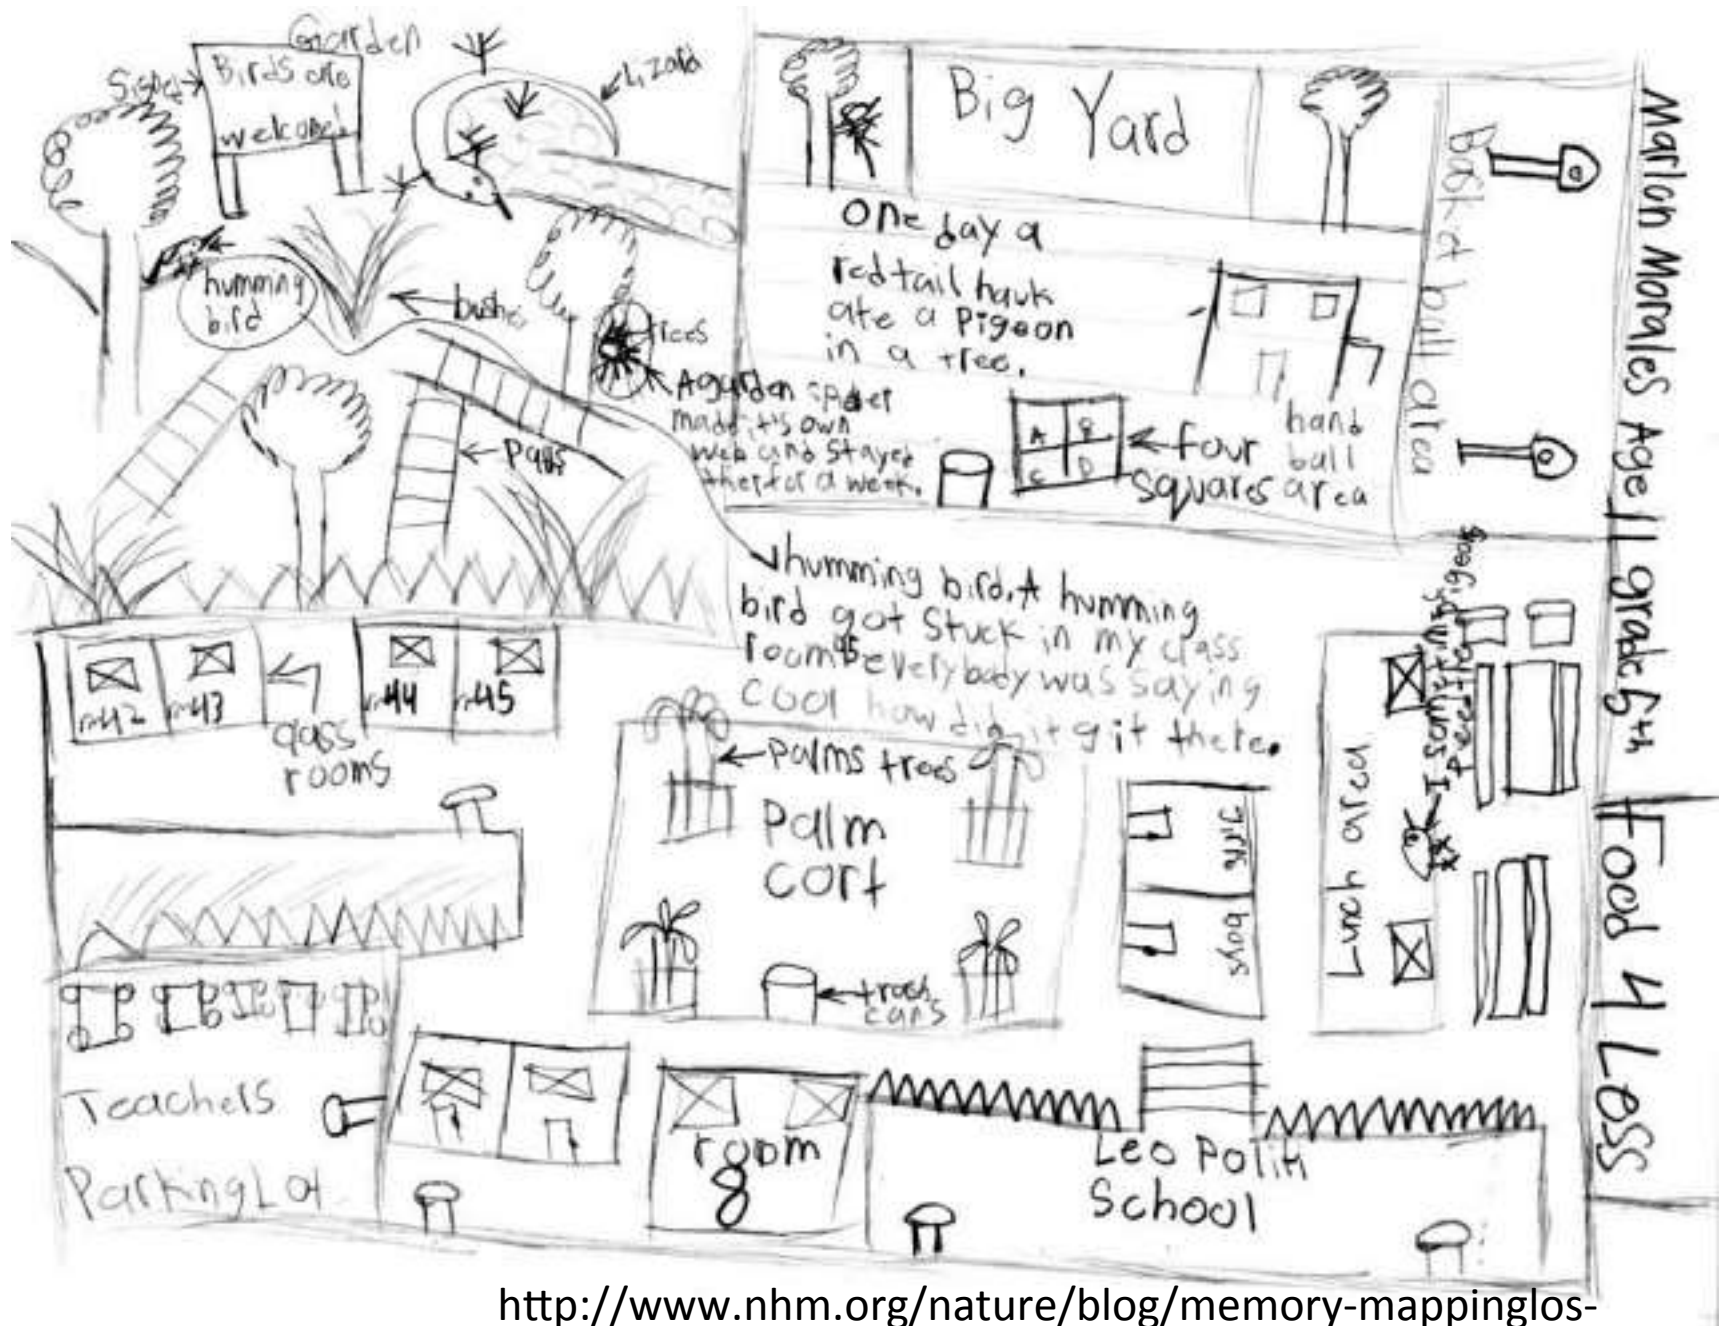 Garden
Birds are
welcomed
Lizard
humming
bird
trees
A garden spider
made it's own
web and stayed
ther for a week.
Big Yard
One day a
red tail hauk
ate a pigeon
in a tree.
A B
C D
four
squares
hand
ball
area
Marlon Morales Age 11 grade 6th
Food 4 Less
humming bird. A humming
bird got stuck in my class
room everybody was saying
cool how did it git there.
rm42
rm43
rm44
rm45
class
rooms
palms trees
palm
cort
trash
cans
girls
boys
Lunch area
Teachers
Parking Lot
room
8
Leo Politi
School
http://www.nhm.org/nature/blog/memory-mappinglos-